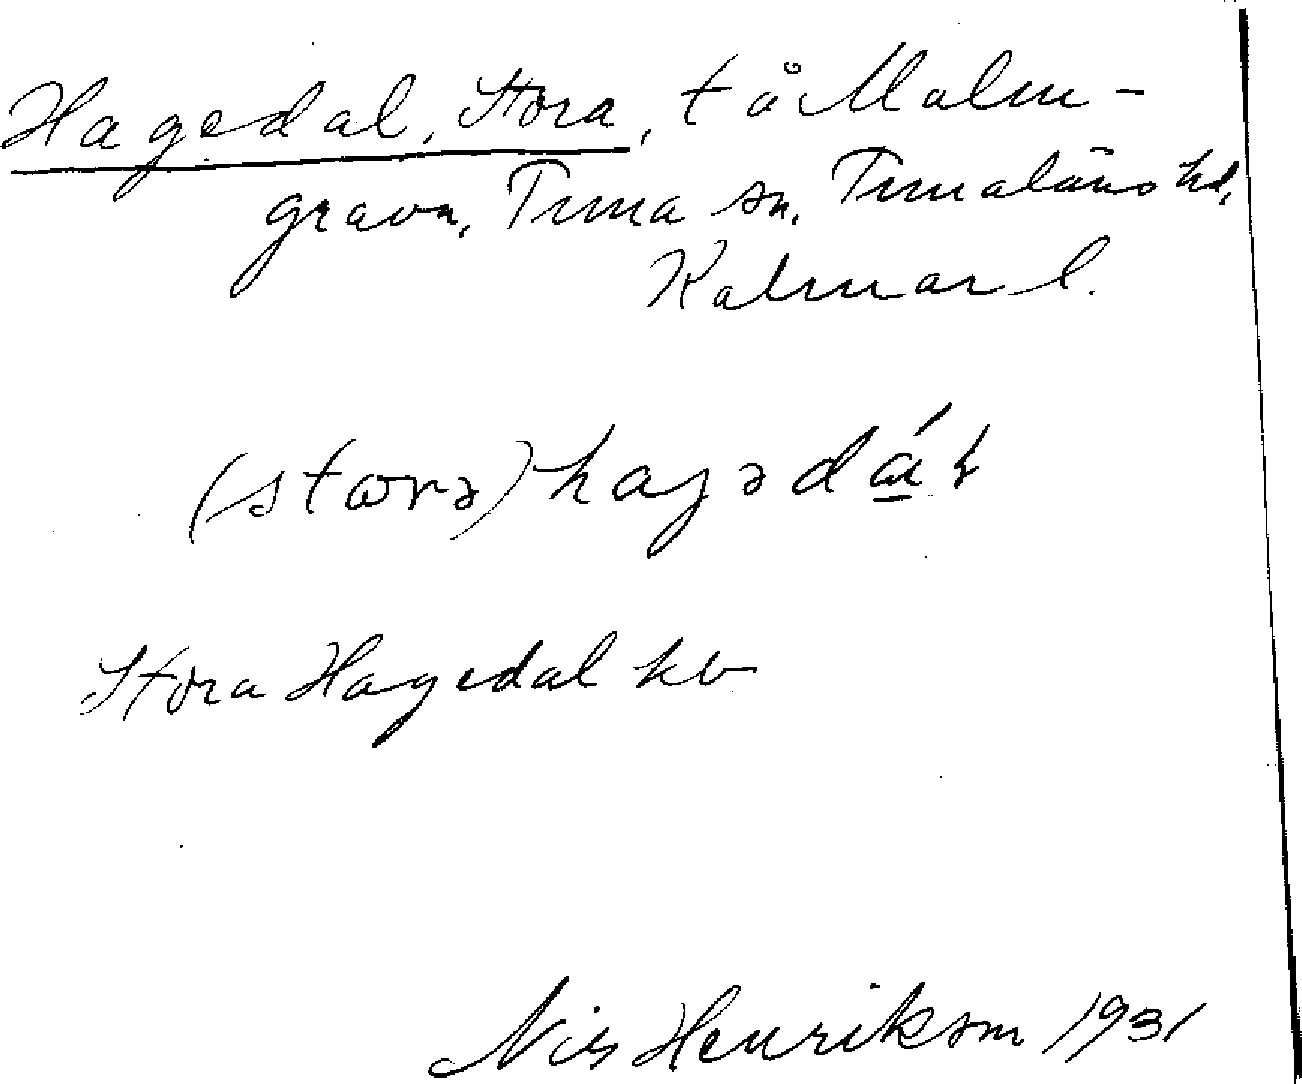 Hagedal, Stora, t å Malm-
grava, Tuna sn, Tunaläns hd,
Kalmar l.
(stɷrə) hagədát
Stora Hagedal kb
Nils Henrikson 1931